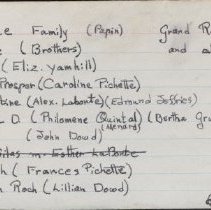 e Family (Papin) Grand R
e (Brothers) and a
(Eliz. Yamhill)
Prosper (Caroline Pichette)
tine (Alex. Labonte) (Edmund Jeffries)
L D. (Philomene Quintal) (Bertha Gr
(Menard)
(John Dowd)
m. Esther LaBonte
h (Frances Pichette)
n Roch (Lillian Dowd)